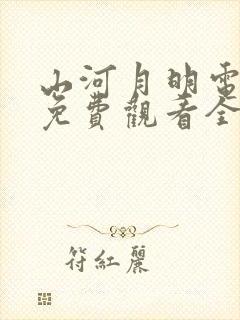 山河月明電
免費觀看全
符紅麗